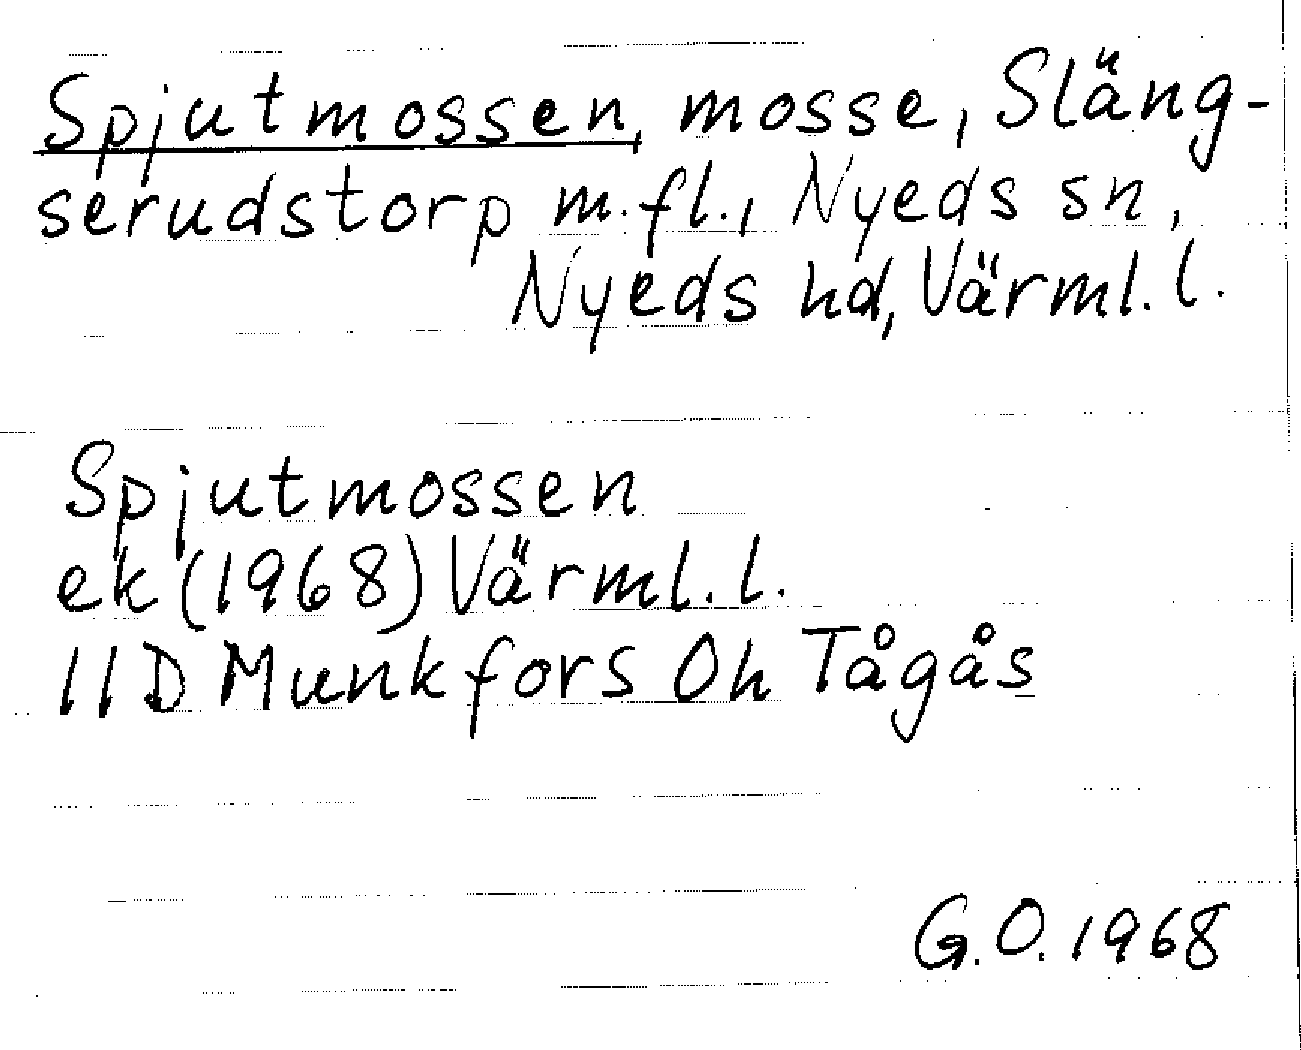 Spjutmossen, mosse, Släng-
serudstorp m.fl., Nyeds sn,
Nyeds hd, Värml. l.
Spjutmossen
ek (1968) Värml. l.
11D Munkfors Oh Tågås
G.O. 1968